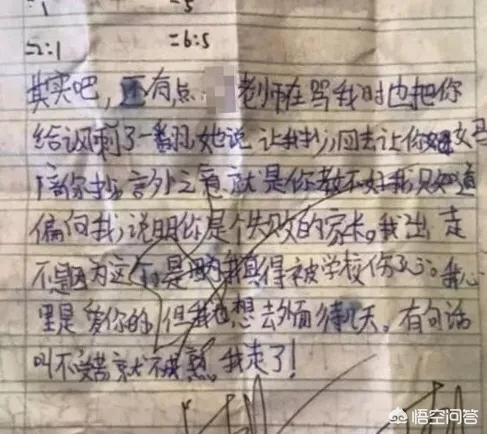 =1 =5
=2:1 =6:5
其实吧，还有点 老师在骂我时也把你
给讽刺了一番，她说让我抄，回去让你妈
陪你抄，言外之意就是你教不好我，只知道
偏向我，说明你是个失败的家长。我出走
不是因为这个，是因为我真得被学校伤了心。我心
里是爱你的，但我也想去外面待几天。有句话
叫不受苦就不成熟，我走了！
悟空问答